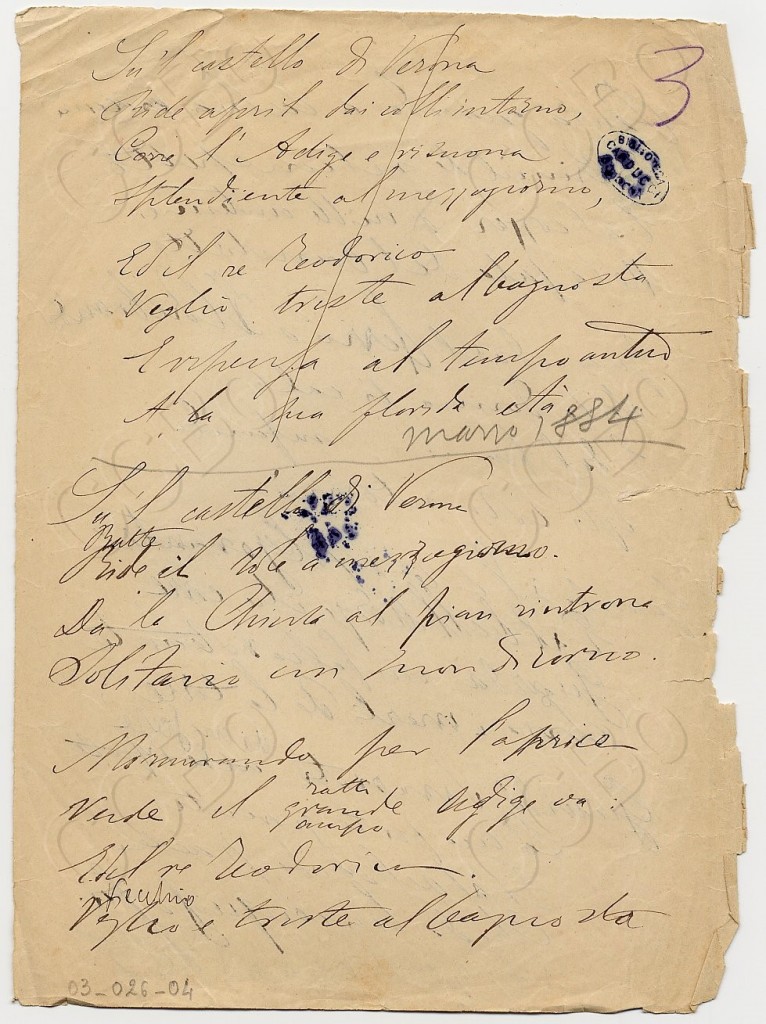 Su 'l castello di Verona
Ride april dai colli intorno,
Corre l' Adige e risuona
Splendiente al mezzogiorno,
Ed il re Teodorico
Veglio triste al bagno sta
E ripensa al tempo antico
A la sua florida età
marzo 1884
3
BIBLIOTECA
CARDUCCI
BOLOGNA
Su 'l castello di Verona
Batte
Ride il sole a mezzogiorno.
Da la Chiusa al pian rintrona
Solitario un suon di corno.
Mormorando per l'aprico
Verde il grande Adige va:
ratto
campo
Ed il re Teodorico
Vecchio
Veglio e triste al bagno sta
03-026-04